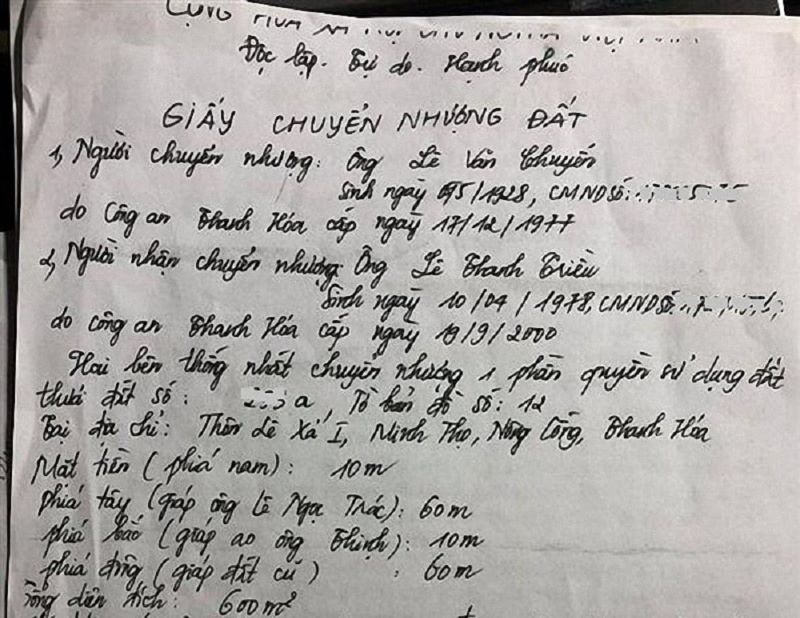 CỘNG HÒA XÃ HỘI CHỦ NGHĨA VIỆT NAM
Độc lập. Tự do. Hạnh phúc
GIẤY CHUYỂN NHƯỢNG ĐẤT
1, Người chuyển nhượng: Ông Lê Văn Chuyến
Sinh ngày /1928, CMND Số:
do Công an Thanh Hóa cấp ngày 17/12/1977
2, Người nhận chuyển nhượng: Ông Lê Thanh Triều
Sinh ngày 10/04/1978, CMND Số:
do công an Thanh Hóa cấp ngày 19/9/2000
Hai bên thống nhất chuyển nhượng 1 phần quyền sử dụng đất
thửa đất số: a, Tờ bản đồ số: 12
Tại địa chỉ: Thôn Lê Xá I, Minh Thọ, Nông Cống, Thanh Hóa
Mặt tiền (phía nam): 10m
phía tây (giáp ông Lê Ngọc Trác): 60m
phía bắc (giáp ao ông Thịnh): 10m
phía đông (giáp đất cũ) : 60m
Tổng diện tích: 600m²